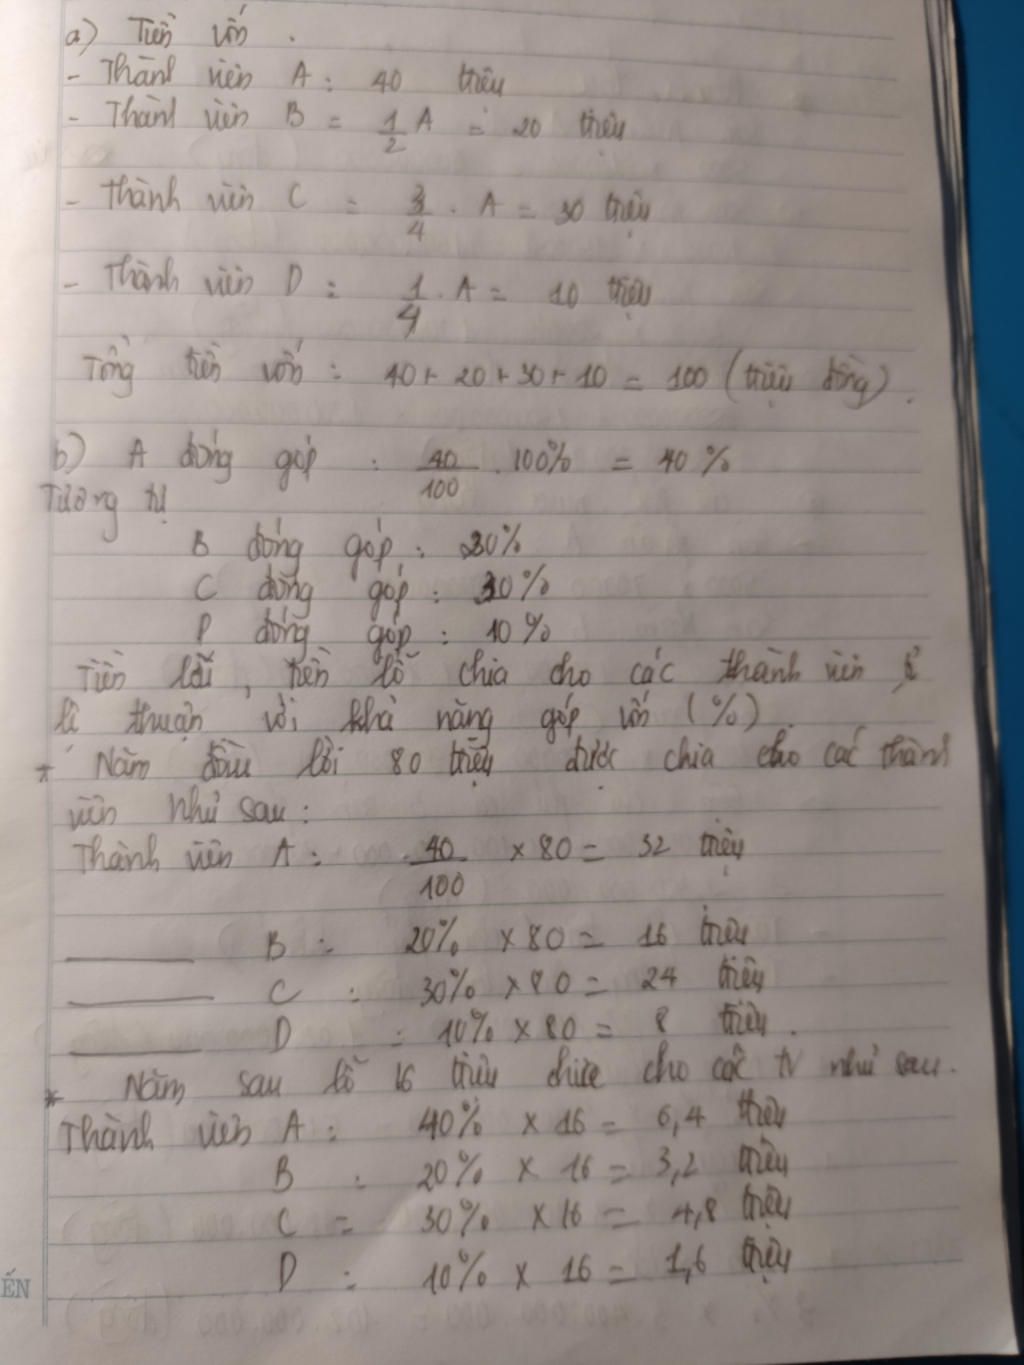 a) Tiền vốn.
- Thành viên A: 40 triệu
- Thành viên B = 1/2 A = 20 triệu
- Thành viên C = 3/4 . A = 30 triệu
- Thành viên D = 1/4 . A = 10 triệu
Tổng tiền vốn = 40 + 20 + 30 + 10 = 100 (triệu đồng).
b) A đóng góp : 40/100 . 100% = 40%
Tương tự
B đóng góp : 20%
C đóng góp : 30%
D đóng góp : 10%
Tiền lãi, tiền lỗ chia cho các thành viên tỉ
lệ thuận với khả năng góp vốn (%).
* Năm đầu lời 80 triệu được chia cho các thành
viên như sau:
Thành viên A: 40/100 × 80 = 32 triệu
____ B : 20% × 80 = 16 triệu
____ C : 30% × 80 = 24 triệu
____ D : 10% × 80 = 8 triệu.
* Năm sau lỗ 16 triệu chia cho các tv như sau.
Thành viên A : 40% × 16 = 6,4 triệu
B : 20% × 16 = 3,2 triệu
C = 30% × 16 = 4,8 triệu
D : 10% × 16 = 1,6 triệu
ẾN